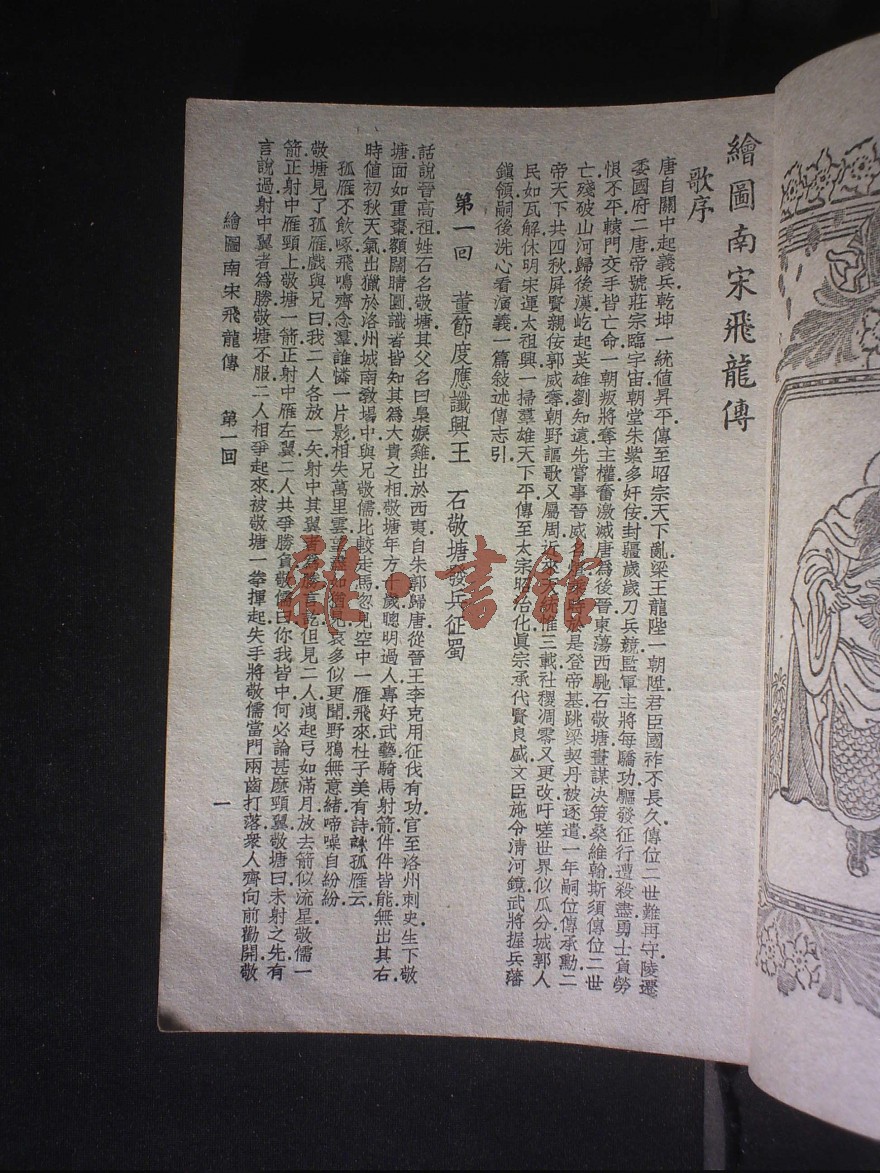 繪圖南宋飛龍傳
歌序
唐自關中起義兵乾坤一統值昇平傳至昭宗天下亂梁王龍陛一朝陞君臣國祚不長久傳位二世難再守陵遷
委國府二唐帝號莊宗臨宇宙朝堂朱紫多奸佞封疆歲歲刀兵競監軍主將每驕功驅發征行遭殺盡勇士負勞
恨不平轅門交手皆亡命一朝叛將奪主權奮激滅唐為後晉東蕩西馳石敬塘畫謀決策桑維翰斯須傳位二世
亡殘破山河歸後漢屹起英雄劉知遠先嘗事晉威 是登帝基跳梁契丹被逐遣一年嗣位傳承勳二
帝天下共四秋屏賢親佞郭威奪朝野謳歌又屬周 惟三載社稷凋零又更改吁嗟世界似瓜分城郭人
民如瓦解休明宋運太祖興一掃羣雄天下平傳至太宗昭治化眞宗承代賢良盛文臣施令清河鏡武將握兵藩
鎭領嗣後洗心看演義一篇敍述傳志引
第一回 董節度應讖興王 石敬塘發兵征蜀
話說晉高祖姓石名敬塘其父名曰梟娛雞出於西夷自朱郭歸唐從晉王李克用征伐有功官至洛州刺史生下敬
塘面如重棗額闊睛圓識者皆知其爲大貴之相敬塘年方十歲聰明過人專好武藝騎馬射箭件件皆能無出其右
時値初秋天氣出獵於洛州城南敎場中與兄敬儒比較走馬忽見空中一雁飛來杜子美有詩詠孤雁云
孤雁不飲啄飛鳴齊念羣誰憐一片影相失萬里雲望盡如猶見哀多似更聞野鴉無意緒啼噪自紛紛
敬塘見了孤雁戲與兄曰我二人各放一矢射中其翼者爲勝言訖但見二人洩起弓如滿月放去箭似流星敬儒一
箭正射中雁頸上敬塘一箭正射中雁左翼二人共爭勝負敬儒曰你我皆中何必論甚麽頸翼敬塘曰未射之先有
言說過射中翼者爲勝敬塘不服二人相爭起來被敬塘一拳揮起失手將敬儒當門兩齒打落衆人齊向前勸開敬
繪圖南宋飛龍傳 第一回 一
龍·書館